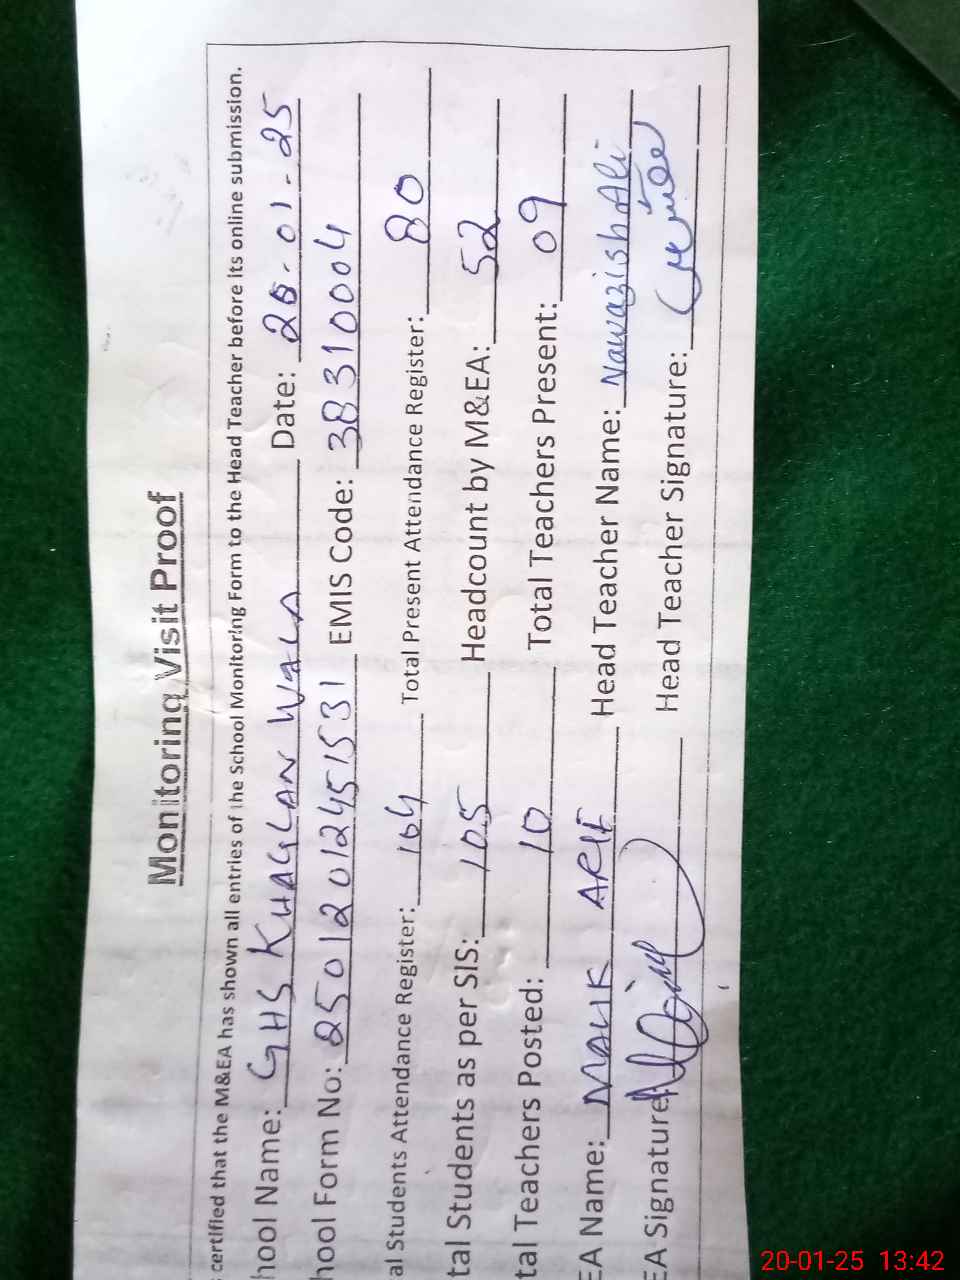 Monitoring Visit Proof
certified that the M&EA has shown all entries of the School Monitoring Form to the Head Teacher before its online submission.
hool Name: GHS KHAGLAN WALA Date: 20.01.25
hool Form No: 25012012451531 EMIS Code: 38310004
al Students Attendance Register: 104 Total Present Attendance Register: 80
tal Students as per SIS: 105 Headcount by M&EA: 52
tal Teachers Posted: 10 Total Teachers Present: 09
EA Name: MALIK ARIF Head Teacher Name: Nawazish Ali
EA Signature: Head Teacher Signature:
20-01-25 13:42